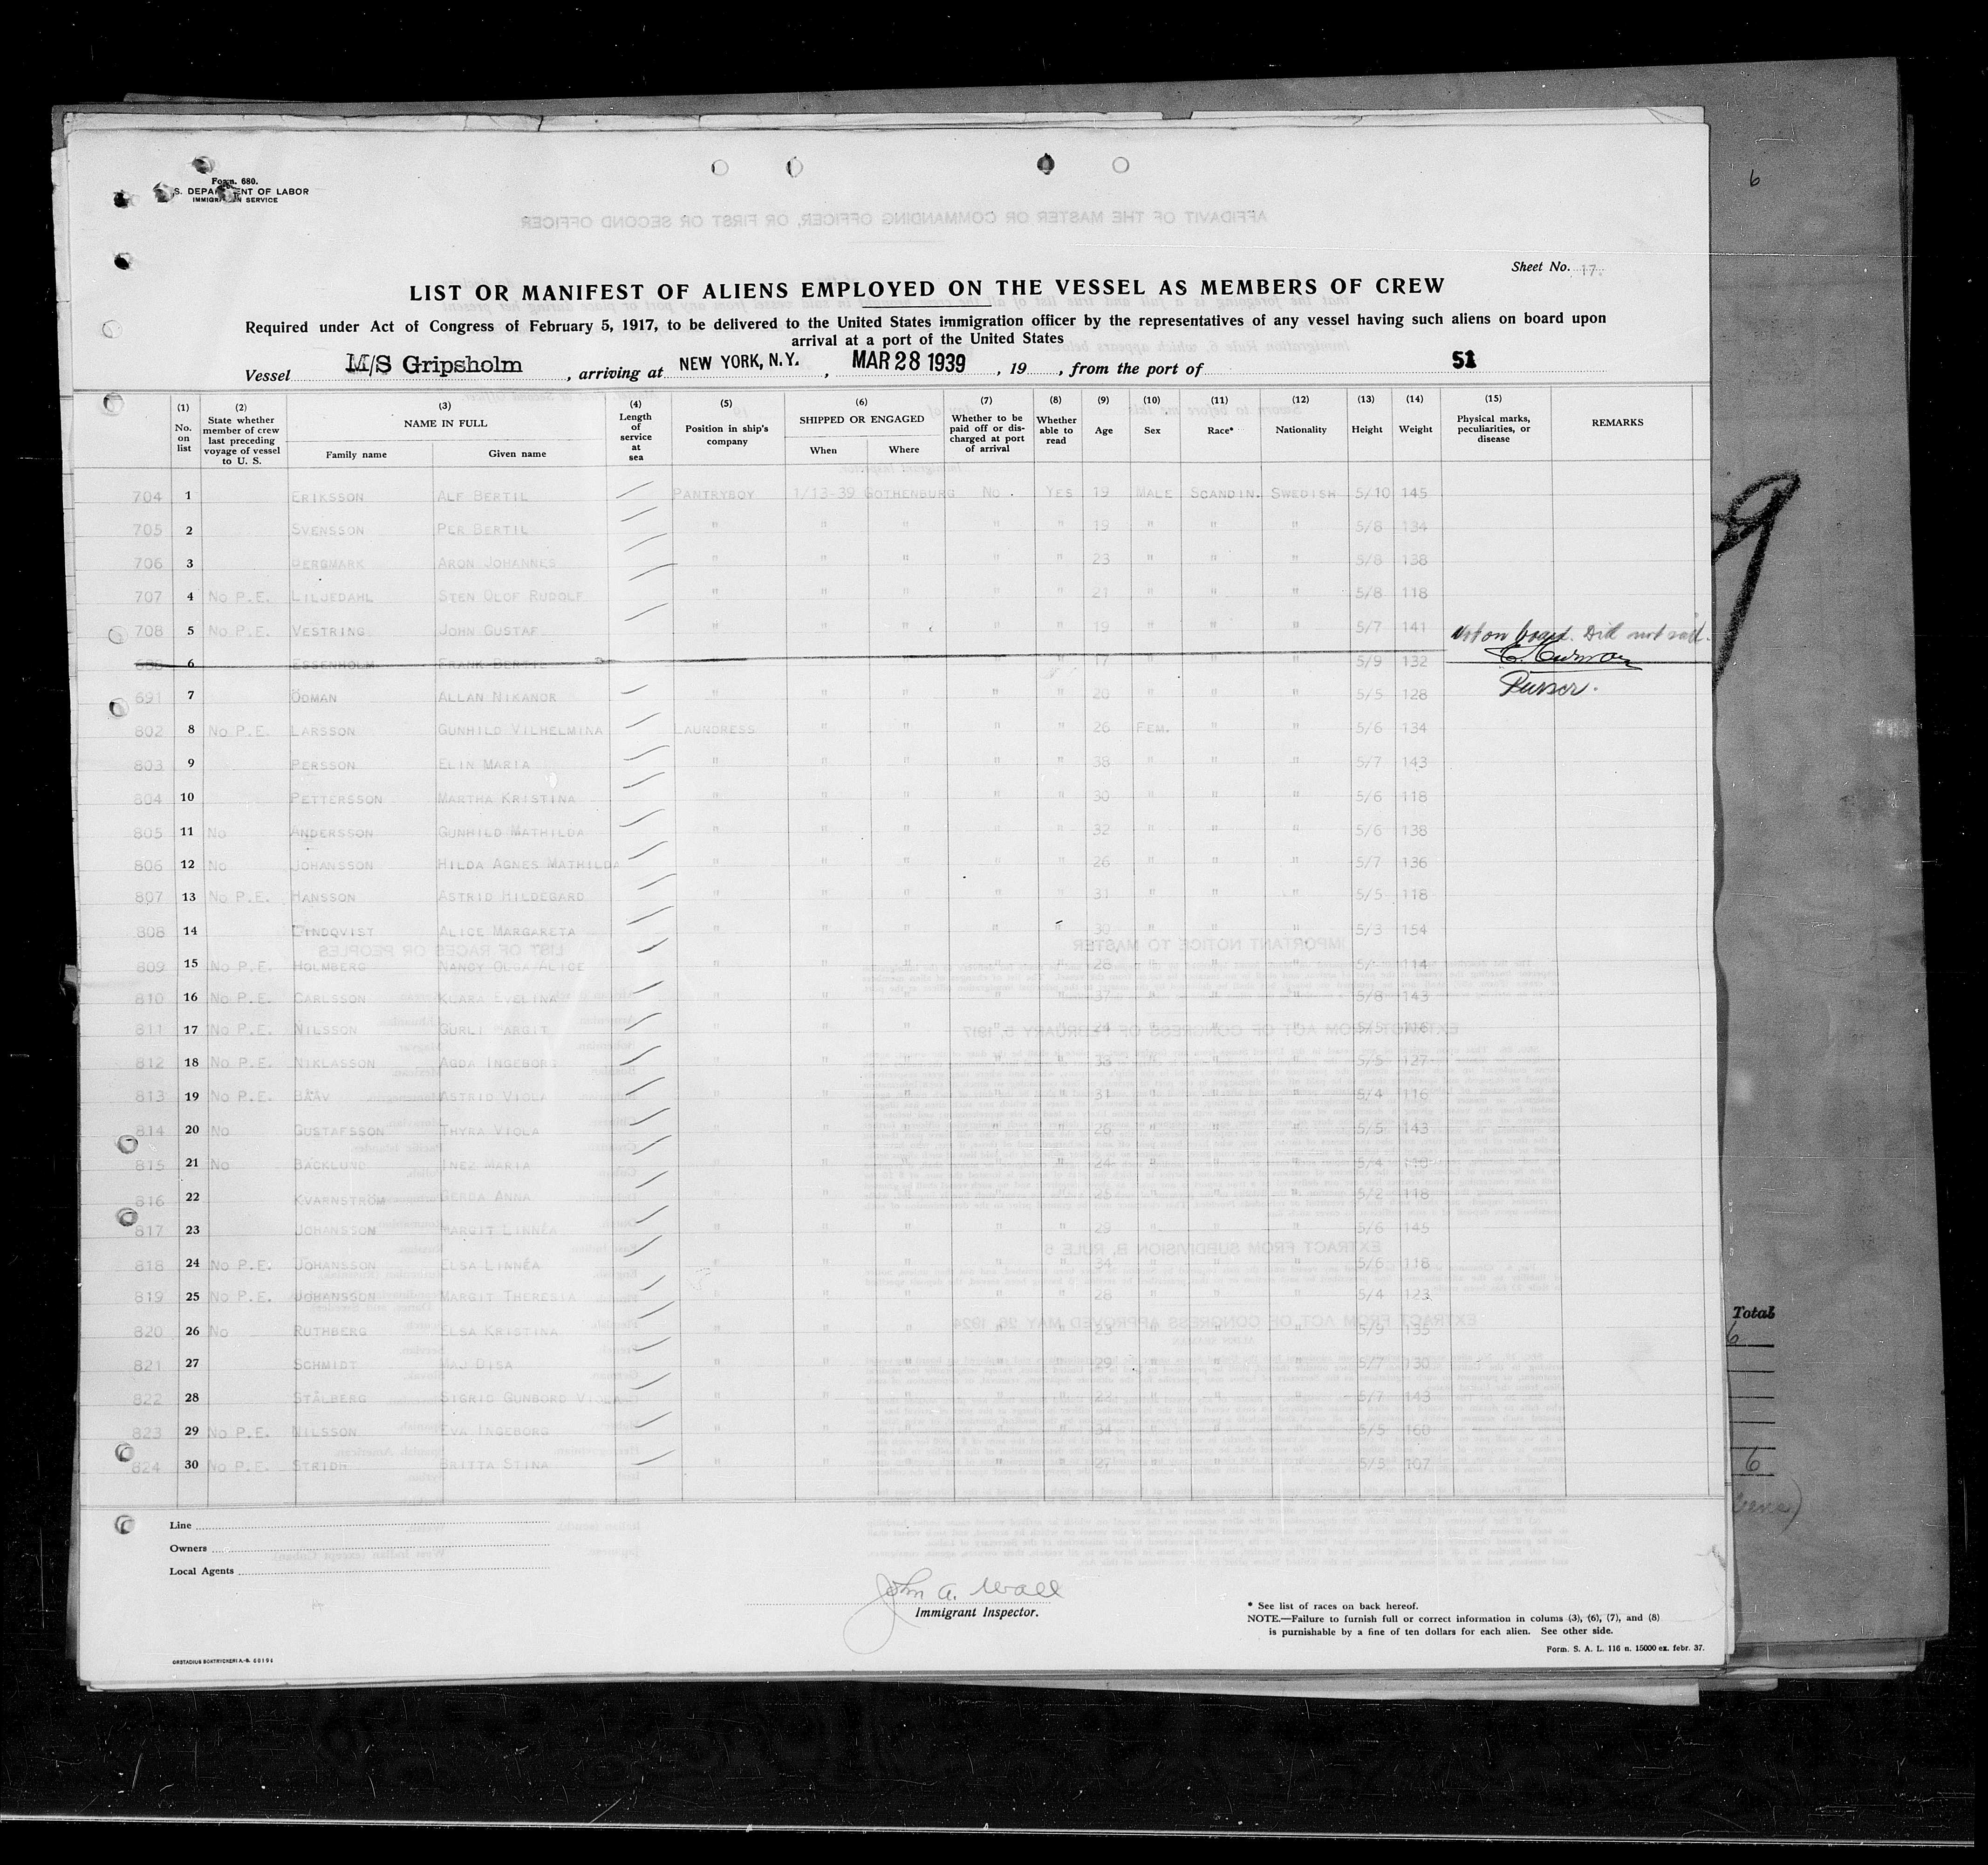 Form. 680.
U.S. DEPARTMENT OF LABOR
IMMIGRATION SERVICE
Sheet No. 17.
LIST OR MANIFEST OF ALIENS EMPLOYED ON THE VESSEL AS MEMBERS OF CREW
Required under Act of Congress of February 5, 1917, to be delivered to the United States immigration officer by the representatives of any vessel having such aliens on board upon
arrival at a port of the United States
Vessel M/S Gripsholm, arriving at NEW YORK, N.Y., MAR 28 1939, 19 , from the port of 51
(1) No. on list (2) State whether member of crew last preceding voyage of vessel to U. S. (3) NAME IN FULL Family name Given name (4) Length of service at sea (5) Position in ship's company (6) SHIPPED OR ENGAGED When Where (7) Whether to be paid off or discharged at port of arrival (8) Whether able to read (9) Age (10) Sex (11) Race* (12) Nationality (13) Height (14) Weight (15) Physical marks, peculiarities, or disease REMARKS
704 1 ERIKSSON ALF BERTIL PANTRYBOY 1/13-39 GOTHENBURG No. YES 19 MALE SCANDIN. SWEDISH 5/10 145
705 2 SVENSSON PER BERTIL " " " " " 19 " " " 5/8 134
706 3 BERGMARK ARON JOHANNES " " " " " 23 " " " 5/8 138
707 4 No P.E. LILJEDAHL STEN OLOF RUDOLF " " " " " 21 " " " 5/8 118
708 5 No P.E. VESTRING JOHN GUSTAF " " " " " 19 " " " 5/7 141 Not on board. Did not sail.
6 ESSENHOLM FRANK BERTIL " " " 17 " " " 5/9 132
Purser.
691 7 ÖDMAN ALLAN NIKANOR " " " " " 20 " " " 5/5 128
802 8 No P.E. LARSSON GUNHILD VILHELMINA LAUNDRESS " " " " 26 FEM. " " 5/6 134
803 9 PERSSON ELIN MARIA " " " " " 38 " " " 5/7 143
804 10 PETTERSSON MARTHA KRISTINA " " " " " 30 " " " 5/6 118
805 11 No ANDERSSON GUNHILD MATHILDA " " " " " 32 " " " 5/6 138
806 12 No JOHANSSON HILDA AGNES MATHILDA " " " " " 26 " " " 5/7 136
807 13 No P.E. HANSSON ASTRID HILDEGARD " " " " " 31 " " " 5/5 118
808 14 LINDQVIST ALICE MARGARETA " " " " " 30 " " " 5/3 154
809 15 No P.E. HOLMBERG NANCY OLGA ALICE " " " " " 28 " " " 114
810 16 No P.E. CARLSSON KLARA EVELINA " " " " " 37 " " " 5/8 143
811 17 No P.E. NILSSON GURLI MARGIT " " " " " 24 " " " 5/5 116
812 18 No P.E. NIKLASSON AGDA INGEBORG " " " " " 33 " " " 5/5 127
813 19 No P.E. BÄÄV ASTRID VIOLA " " " " " 31 " " " 5/4 116
814 20 No GUSTAFSSON THYRA VIOLA " " " " " 26 " " " 5/5 143
815 21 No BÄCKLUND INEZ MARIA " " " " " 24 " " " 5/4
816 22 KVARNSTRÖM GERDA ANNA " " " " " 25 " " " 5/2 118
817 23 JOHANSSON MARGIT LINNÉA " " " " " 29 " " " 5/6 145
818 24 No P.E. JOHANSSON ELSA LINNÉA " " " " " 34 " " " 5/6 118
819 25 No P.E. JOHANSSON MARGIT THERESIA " " " " " 28 " " " 5/4 123
820 26 No RUTHBERG ELSA KRISTINA " " " " " 23 " " " 5/9 135
821 27 SCHMIDT MAJ DISA " " " " " 29 " " " 5/7 130
822 28 STÅLBERG SIGRID GUNBORD VIOLA " " " " " 22 " " " 5/7 143
823 29 No P.E. NILSSON EVA INGEBORG " " " " " 34 " " " 5/5 160
824 30 No P.E. STRIDH BRITTA STINA " " " " " 27 " " " 5/5 107
Line
Owners
Local Agents
John A. Wall
Immigrant Inspector.
* See list of races on back hereof.
NOTE.—Failure to furnish full or correct information in colums (3), (6), (7), and (8)
is punishable by a fine of ten dollars for each alien. See other side.
Form. S. A. L. 116 n. 15000 ex. febr. 37.
Total
6
6
6
9